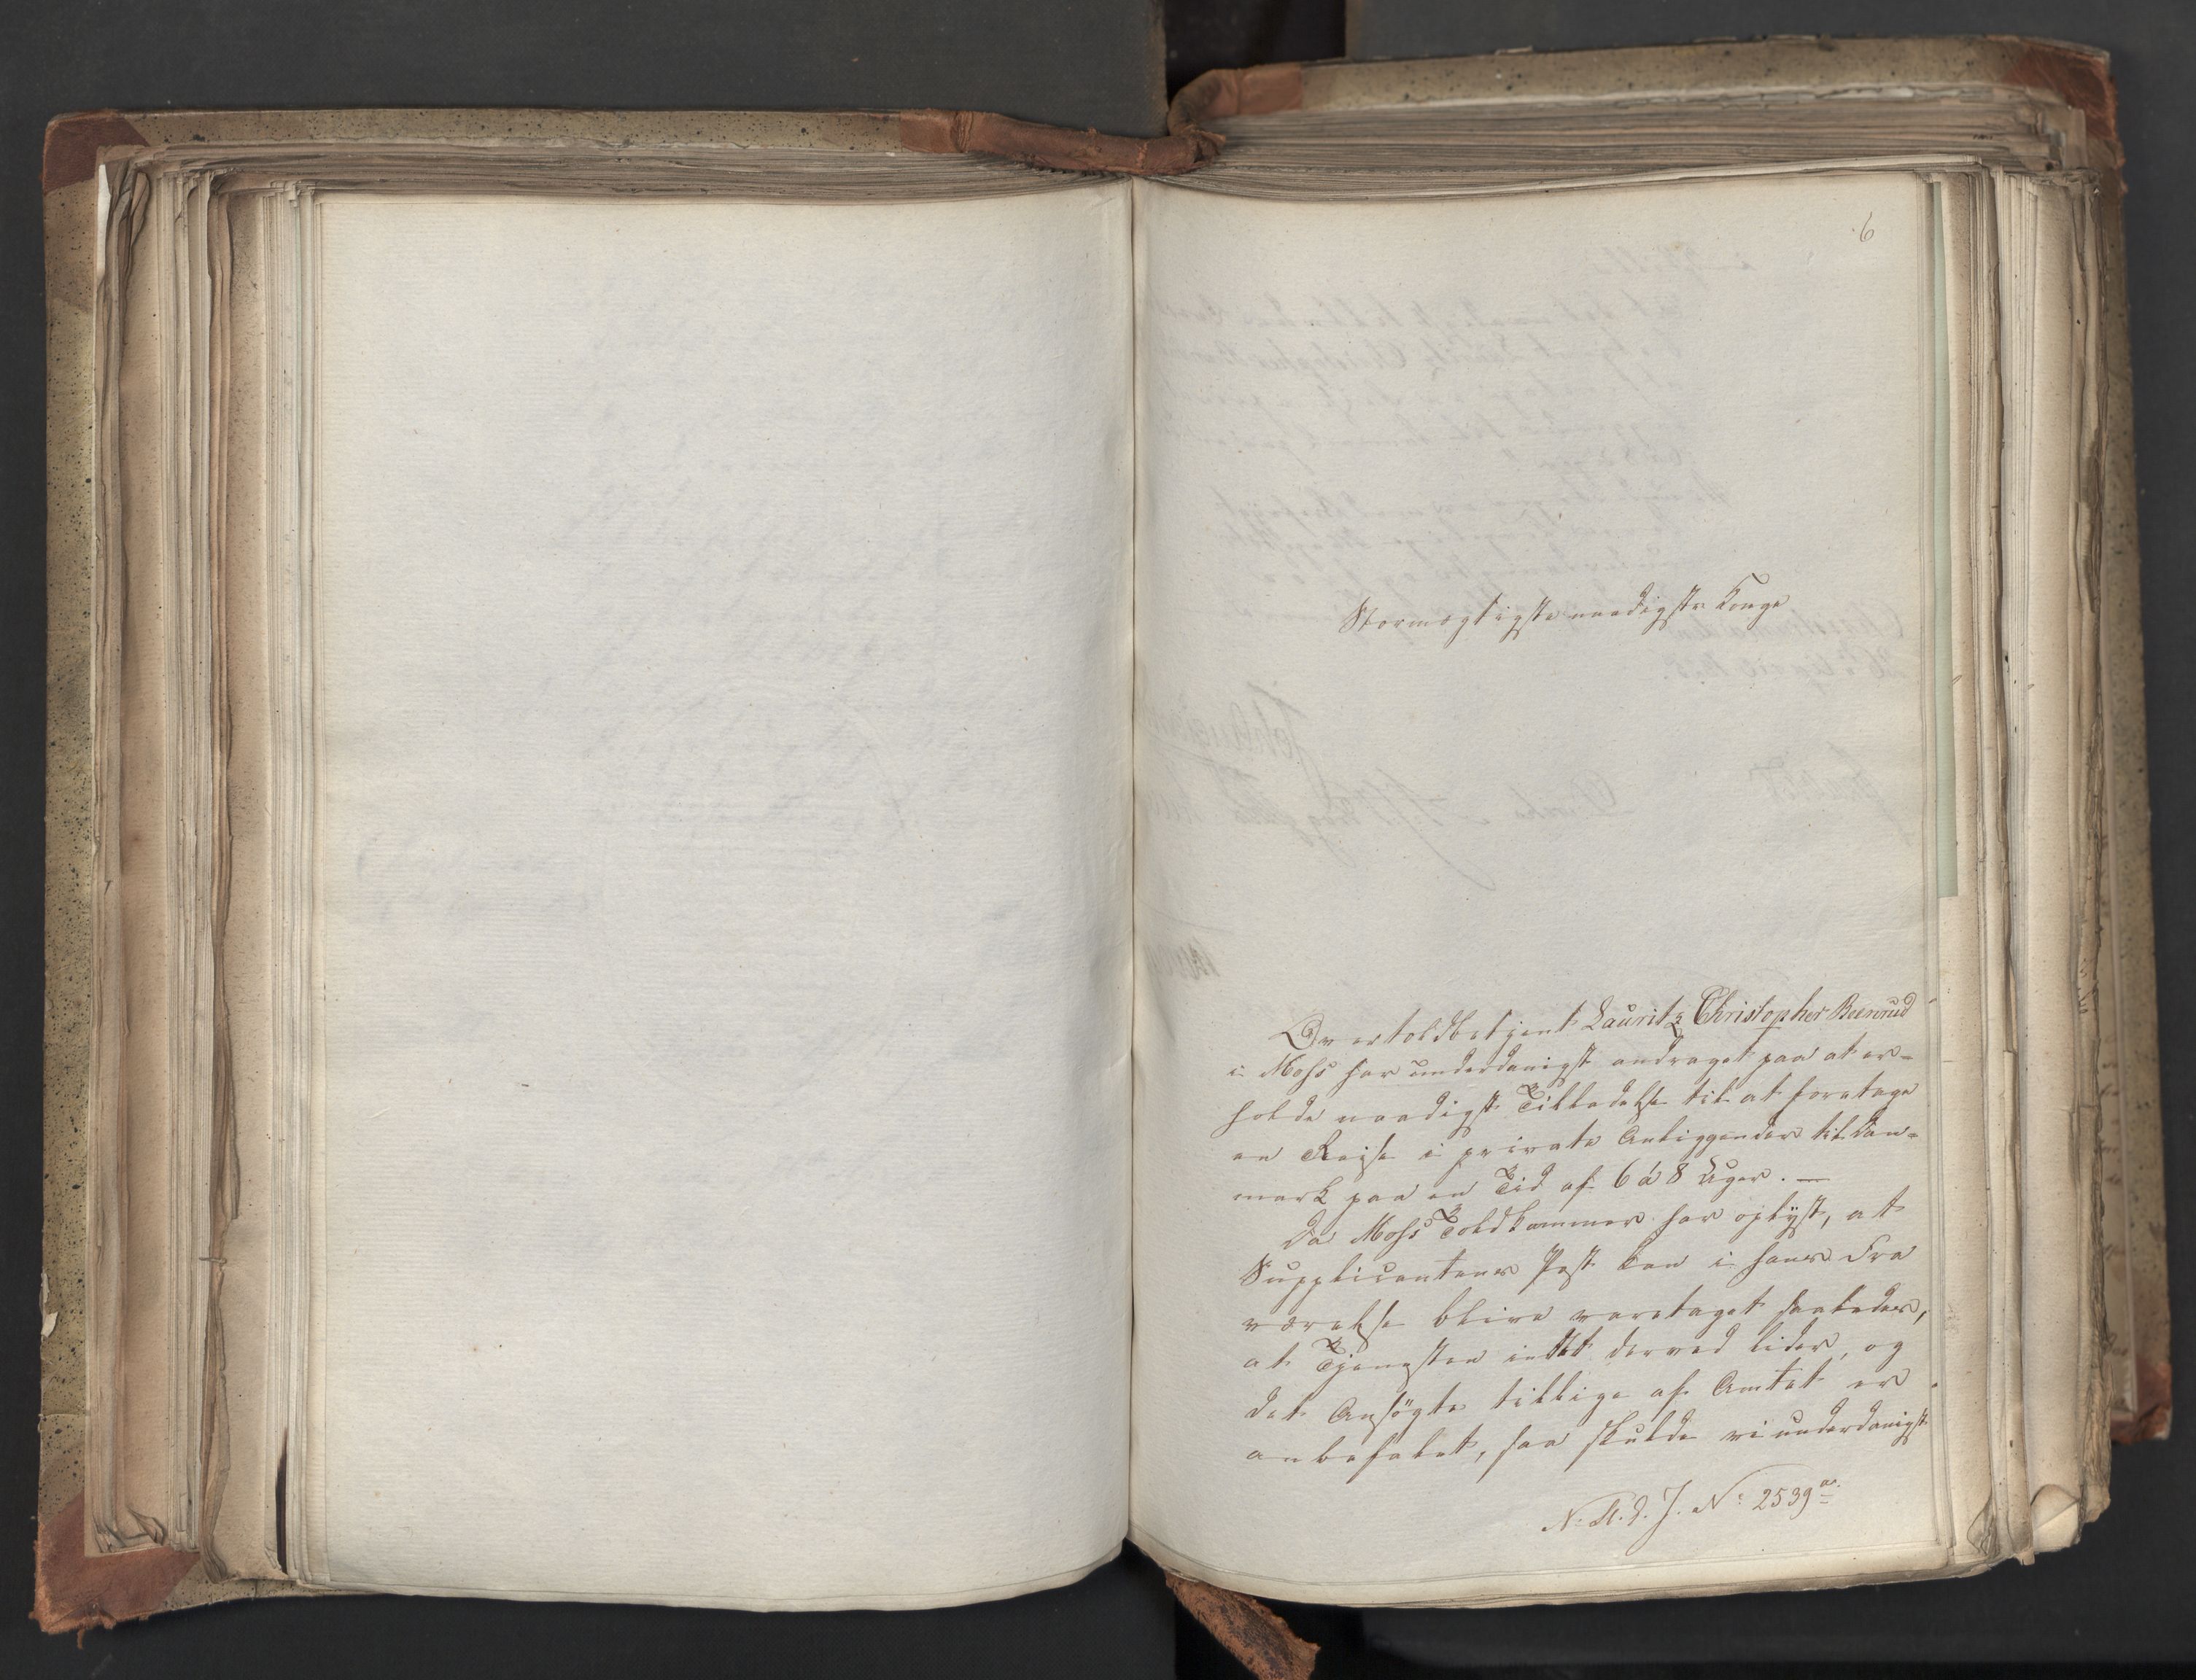 6
Stormægtigste naadigste Konge
Overtoldbetjent Lauritz Christopher
i Moss har underdanigst andraget paa at er-
holde naadigst Tilladelse til at foretage
en Reise i private Anliggender til Dan-
mark paa en Tid af 6 á 8 Uger. —
Da Moss Toldkammer har oplÿst, at
Supplicantens Post kan i hans Fra
værelse blive varetaget saaledes,
at Tjenesten intet derved lider, og
det Ansögte tillige af Amtet er
anbefalet, saa skulde vi underdanigst
J. No 2539